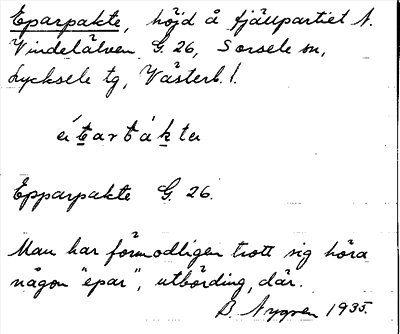 Eparpakte, höjd å fjällpartiet N.
Vindelälven G. 26, Sorsele sn,
Lycksele tg, Västerb. l.
Epparpakte G. 26.
Man har förmodligen trott sig höra
någon "epar", utbörding, där.
B. Nygren 1935.